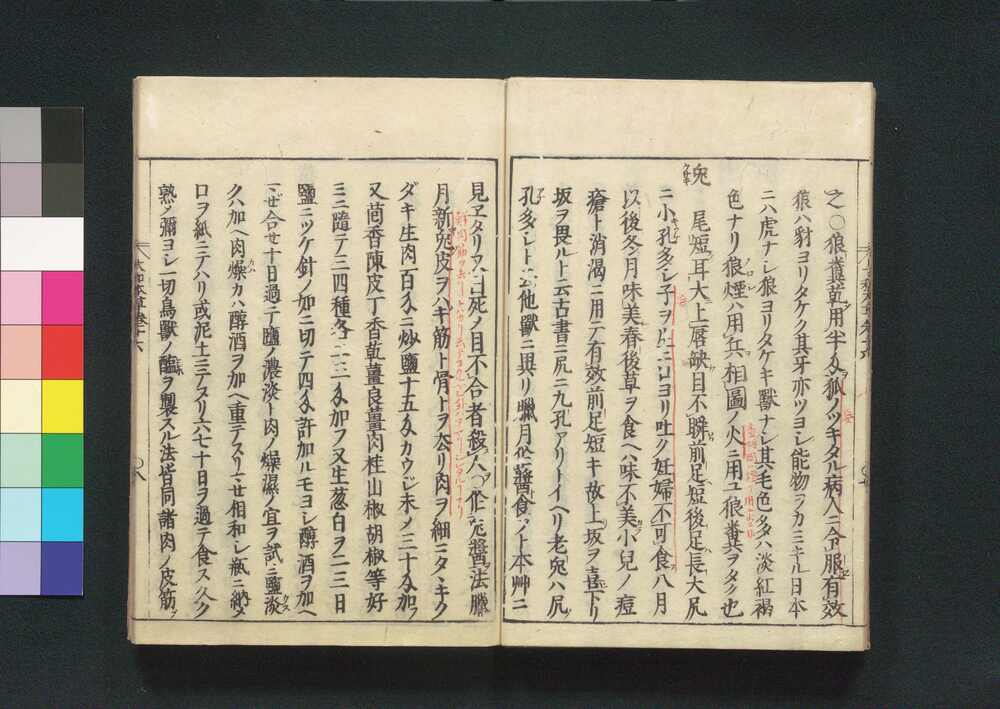 之○狼糞乾用半匁狐ノツキタル病人ニ令服有效
狼ハ豺ヨリタケク其牙亦ツヨシ能物ヲカミキル日本
ニハ虎ナシ狼ヨリタケキ獸ナシ其毛色多ハ淡紅褐
色ナリ狼煙ハ用兵相圖ノ火ニ用ユ狼糞ヲタク也
兔
尾短耳大上唇缺目不瞬前足短後足長大尻
ニ小孔多シ子ヲ口ヨリ吐ク妊婦不可食八月
以後冬月味美春後草ヲ食ヘハ味不美小兒ノ痘
瘡ト消渇ニ用テ有效前足短キ故上坂ヲ喜下リ
坂ヲ畏ルト云古書ニ尻ニ九孔アリトイヘリ老兔ハ尻ノ
孔多シト云他獸ニ異リ臘月作醬食フト本艸ニ
見ヱタリ又曰死ノ目不合者殺人○作兔醬法臘
月新兔皮ヲハキ筋ト骨トヲ去リ肉ヲ細ニタヽキク
ダキ生肉百匁ニ炒鹽十五匁カウジ末ノ三十匁加フ
又茴香陳皮丁香乾薑良薑肉桂山椒胡椒等好
ニ隨テ三四種各二三匁加フ又生葱白ヲ二三日
鹽ニツケ針ノ如ニ切テ四匁許加ルモヨシ醇酒ヲ加ヘ
マゼ合セ十日過テ鹽ノ濃淡ト肉ノ燥濕ノ宜ヲ試ニ鹽淡
クハ加ヘ肉燥カハ醇酒ヲ加ヘ重テスリマセ相和シ瓶ニ納メ
口ヲ紙ニテハリ或泥土ニテヌリ六七十日ヲ過テ食ス久ク
熟メ彌ヨシ一切鳥獸ノ醢ヲ製スル法皆同諸肉ノ皮筋ヲ
大和本草卷之十六